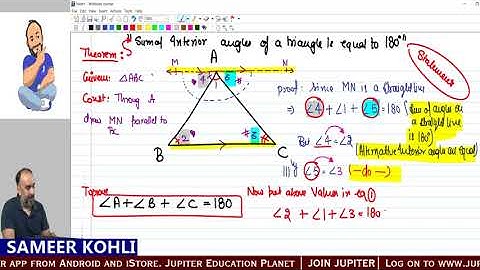 "Sum of Interior angles of a triangle is equal to 180°"
Theorem:
Statement
A
M
N
4
5
1
Given: △ABC
Const: Through A
draw MN parallel to
BC
2
3
B
C
proof: Since MN is a straight line
⇒ ∠4 + ∠1 + ∠5 = 180°
[Sum of angles on
a straight line
is 180°]
But ∠4 = ∠2
[Alternative Interior angles are equal]
|||ly ∠5 = ∠3 (—do—)
To prove
∠A + ∠B + ∠C = 180
Now put above values in eq ①
∠2 + ∠1 + ∠3 = 180
SAMEER KOHLI
ER APP FROM ANDROID AND ISTORE. JUPITER EDUCATION PLANET | JOIN JUPITER | LOG ON TO WWW.JUP